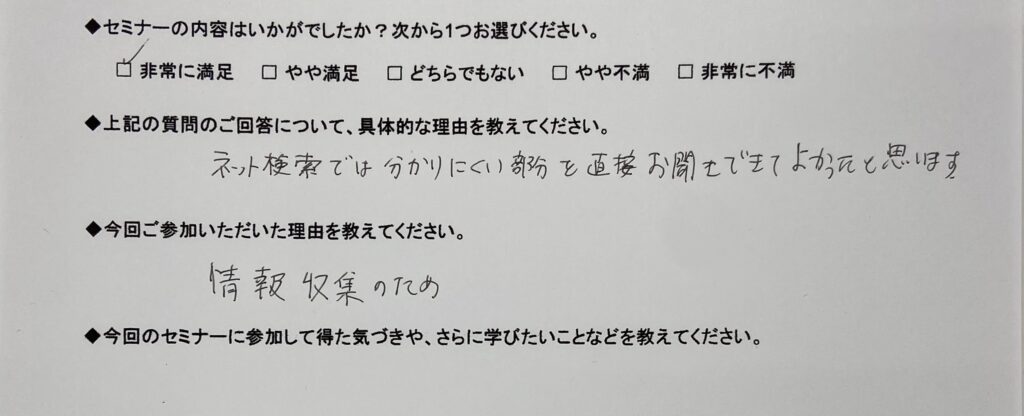 ◆セミナーの内容はいかがでしたか？次から1つお選びください。
☑ 非常に満足 □ やや満足 □ どちらでもない □ やや不満 □ 非常に不満
◆上記の質問のご回答について、具体的な理由を教えてください。
ネット検索では分かりにくい部分を直接お聞きできてよかったと思います
◆今回ご参加いただいた理由を教えてください。
情報収集のため
◆今回のセミナーに参加して得た気づきや、さらに学びたいことなどを教えてください。